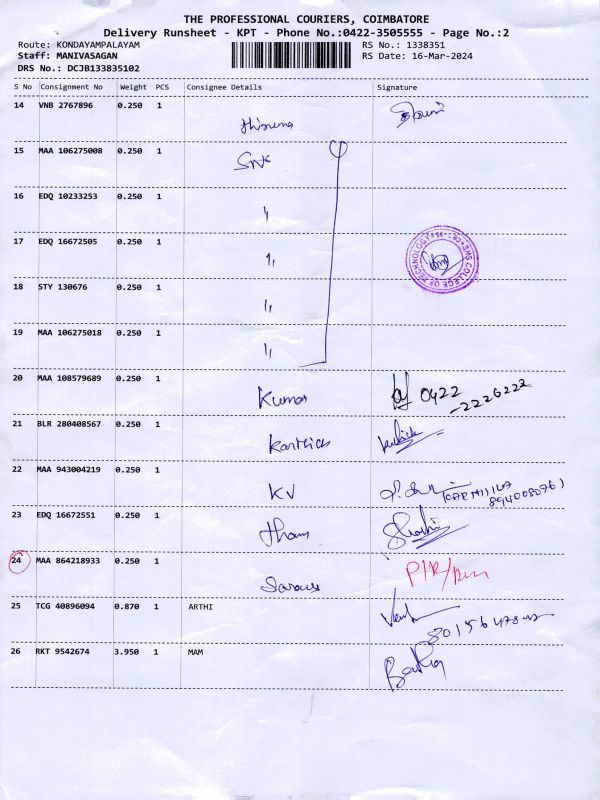 THE PROFESSIONAL COURIERS, COIMBATORE
Delivery Runsheet - KPT - Phone No.:0422-3505555 - Page No.:2
Route: KONDAYAMPALAYAM RS No.: 1338351
Staff: MANIVASAGAN RS Date: 16-Mar-2024
DRS No.: DCJB133835102
S No Consignment No Weight PCS Consignee Details Signature
14 VNB 2767896 0.250 1
15 MAA 106275008 0.250 1
SNS
16 EDQ 10233253 0.250 1
〃
17 EDQ 16672505 0.250 1
〃
SNS COLLEGE OF TECHNOLOGY
18 STY 130676 0.250 1
〃
19 MAA 106275018 0.250 1
〃
20 MAA 108579689 0.250 1
Kumar 0422
-2226222
21 BLR 280408567 0.250 1
Karthick
22 MAA 943004219 0.250 1
KV
23 EDQ 16672551 0.250 1
24 MAA 864218933 0.250 1
25 TCG 40896094 0.870 1 ARTHI
26 RKT 9542674 3.950 1 MAM